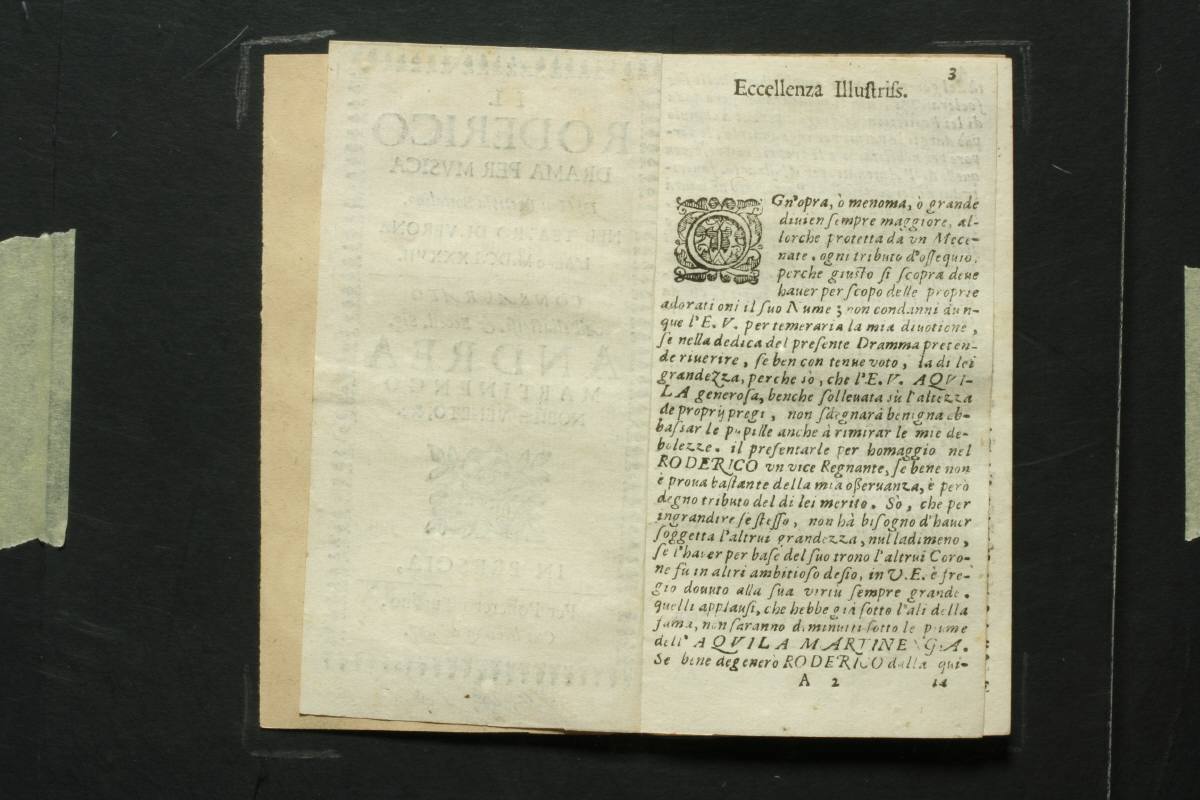 3
Eccellenza Illuſtriſs.
OGn'opra, ò menoma, ò grande
diuien ſempre maggiore, al-
lorche protetta da vn Mece-
nate. ogni tributo d'oſſequio.
perche giuſto ſi ſcopra deue
hauer per ſcopo delle proprie
adorationi il ſuo Nume; non condanni dun-
que l'E. V. per temeraria la mia diuotione,
ſe nella dedica del preſente Dramma preten-
de riuerire, ſe ben con tenue voto, la di lei
grandezza, perche iò, che l'E. V. AQVI-
LA generoſa, benche ſolleuata sù l'altezza
de proprij pregi, non ſdegnarà benigna ab-
baſſar le pupille anche à rimirar le mie de-
bolezze. il preſentarle per homaggio nel
RODERICO vn vice Regnante, ſe bene non
è proua baſtante della mia oſſeruanza, è però
degno tributo del di lei merito. Sò, che per
ingrandire ſe ſteſſo, non hà biſogno d'hauer
ſoggetta l'altrui grandezza, nulladimeno,
ſe l'hauer per baſe del ſuo trono l'altrui Coro-
ne fù in altri ambitioſo deſio, in V.E. è fre-
gio douuto alla ſua virtù ſempre grande.
quelli applauſi, che hebbe già ſotto l'ali della
fama, non ſaranno diminuiti ſotto le piume
dell' AQVILA MARTINENGA.
Se bene degenerò RODERICO dalla qui-
A 2